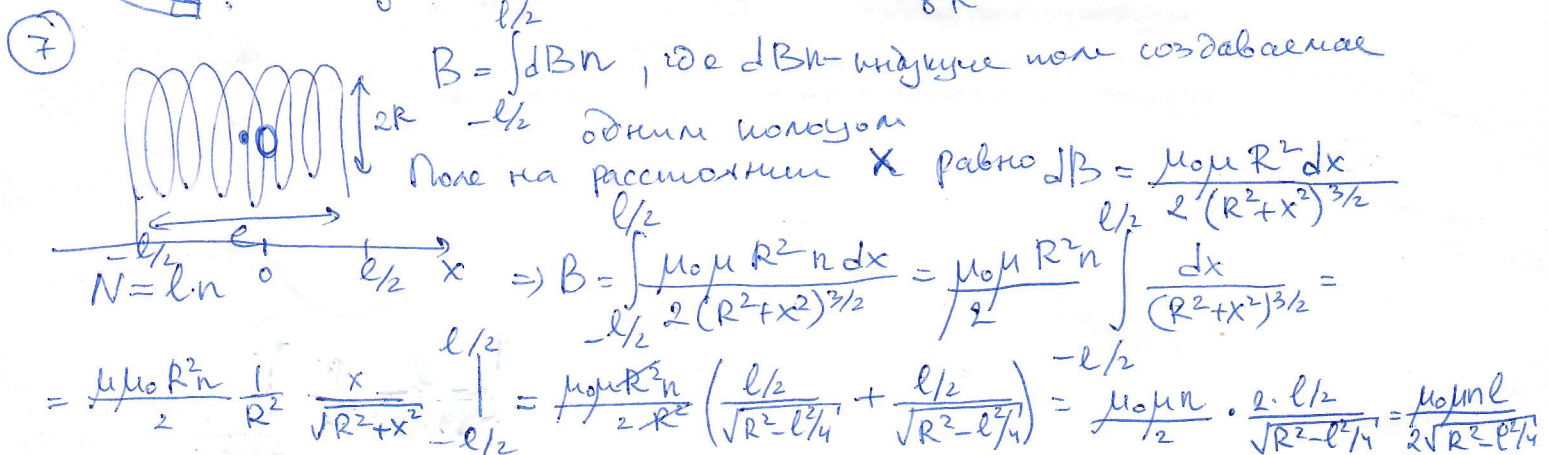 7
B = ∫_{-l/2}^{l/2} dBn, где dBn - индукция поля создаваемая
2R
одним кольцом
Поле на расстоянии x равно dB = μ₀μ R² dx / 2 (R²+x²)^{3/2}
l
-l/2 0 l/2 x
N = l·n
⇒ B = ∫_{-l/2}^{l/2} μ₀μ R² n dx / 2 (R²+x²)^{3/2} = μ₀μ R² n / 2 ∫_{-l/2}^{l/2} dx / (R²+x²)^{3/2} =
= μμ₀ R² n / 2 · 1/R² · x / √(R²+x²) |_{-l/2}^{l/2} = μ₀μ R² n / 2 R² ( l/2 / √(R²-l²/4) + l/2 / √(R²-l²/4) ) = μ₀μ n / 2 · 2·l/2 / √(R²-l²/4) = μ₀μ n l / 2√(R²-l²/4)